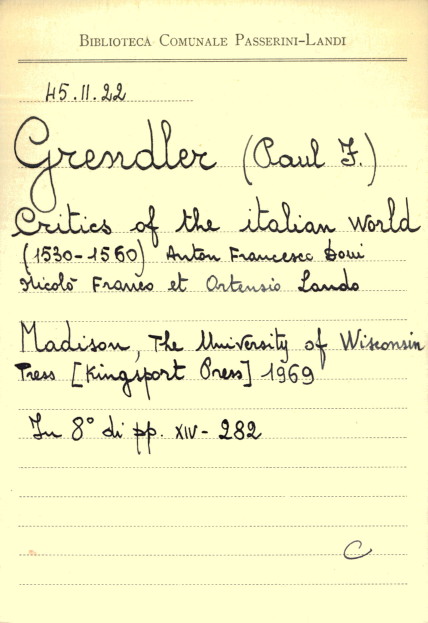 BIBLIOTECA COMUNALE PASSERINI-LANDI
45.II.22
Grendler (Paul F.)
Critics of the italian world
(1530-1560) Anton Francesco Doni
Nicolò Franco et Ortensio Lando
Madison, The University of Wisconsin
Press [Kingsport Press] 1969
In 8° di pp. XIV-282
C